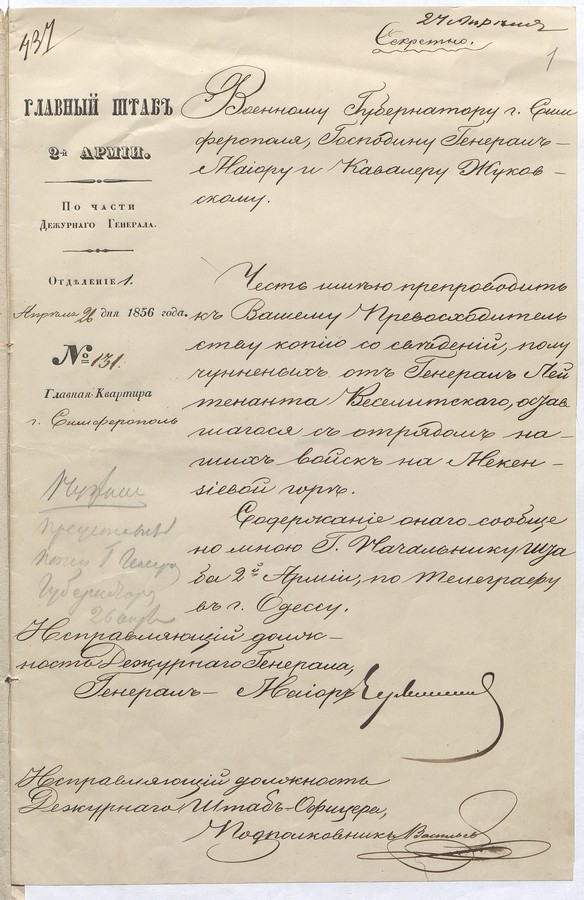 437
27 Апрѣля
Секретно.
1
ГЛАВНЫЙ ШТАБЪ
2-й АРМІИ.
По части
Дежурнаго Генерала.
Отдѣленіе 1.
Апрѣля 26 дня 1856 года.
№ 131.
Главная-Квартира
г. Симферополь
Военному Губернатору г. Сим
ферополя, Господину Генералъ-
Маіору и Кавалеру Жуков-
скому.
Честь имѣю препроводить
къ Вашему Превосходитель
ству копію со свѣдѣній, полу
чунненыхъ отъ Генералъ Лей
тенанта Веселитскаго, остав
шагося съ отрядомъ на-
шихъ войскъ на Мекен-
зіевой горѣ.
Содержаніе онаго сообще
но мною Г. Начальнику Шта
ба 2й Арміи, по телеграфу
въ г. Одессу.
Нужно
представить
копію Г
Губернатору
26 апр
Исправляющій долж-
ность Дежурнаго Генерала,
Генералъ-Маіоръ
Исправляющій должность
Дежурнаго Штабъ-Офицера,
Подполковникъ Васильевъ